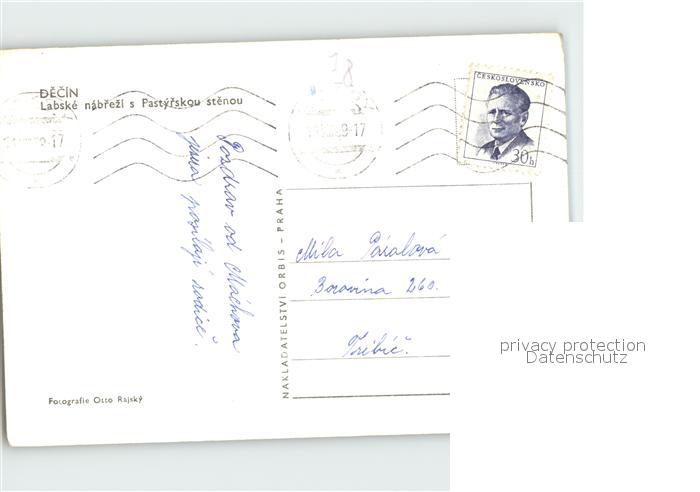 DĚČÍN
Labské nábřeží s Pastýřskou stěnou
18
ČESKOSLOVENSKO
30h
Pozdrav od Máchova
jezera posílají rodiče.
NAKLADATELSTVÍ ORBIS – PRAHA
Míla Páralová
Borovina 260.
Třebíč.
Fotografie Otto Rajský
privacy protection
Datenschutz